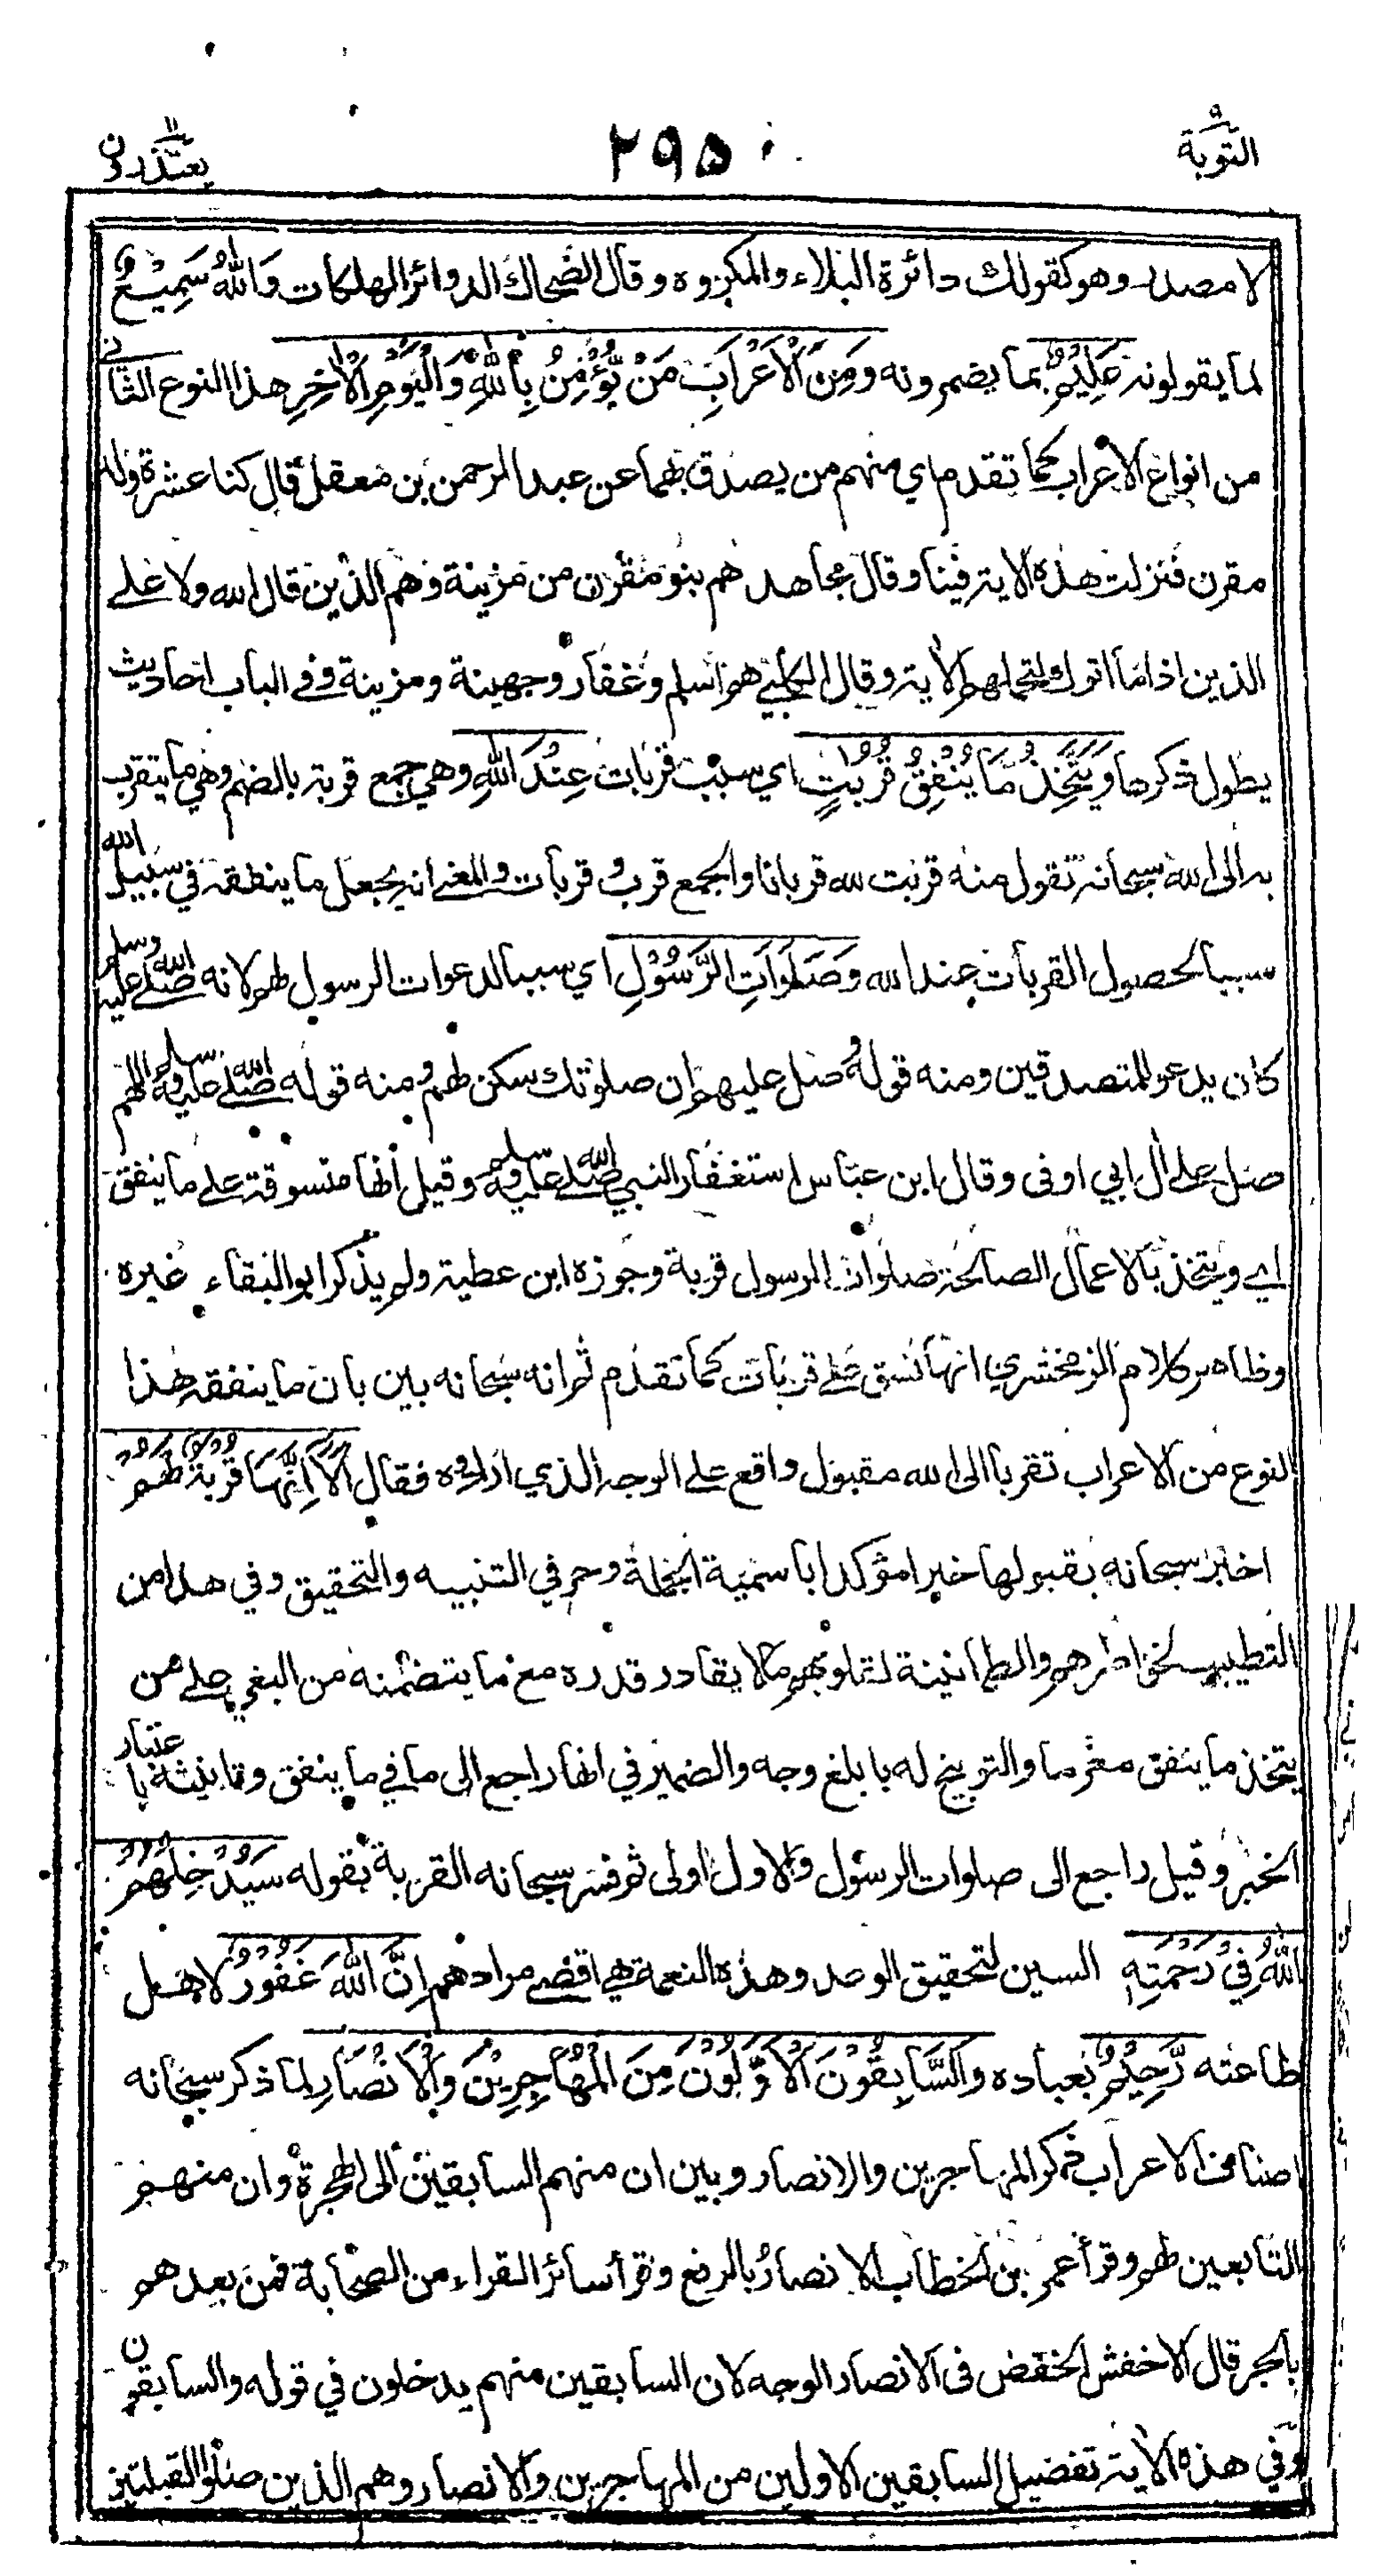 التوبة ٩
٢٩٥
يعتذرون ١١
لا مصدر وهو كقولك دائرة البلاء والمكروه وقال الضحاك الدوائر الهلكات وَاللّٰهُ سَمِيْعٌ
لما يقولونه عَلِيْمٌ بما يضمرونه وَمِنَ الْاَعْرَابِ مَنْ يُّؤْمِنُ بِاللّٰهِ وَالْيَوْمِ الْاٰخِرِ هذا النوع الثاني
من انواع الاعراب كما تقدم اي منهم من يصدق بهما عن عبد الرحمن بن معقل قال كنا عشرة ولد
مقرن فنزلت هذه الاية فينا وقال مجاهد هم بنو مقرن من مزينة وهم الذين قال الله ولا على
الذين اذا ما اتوك لتحملهم الاية وقال الكلبي هم اسلم وغفار وجهينة ومزينة وفي الباب احاديث
يطول ذكرها وَيَتَّخِذُ مَا يُنْفِقُ قُرُبٰتٍ اي سبب قربات عِنْدَ اللّٰهِ وهي جمع قربة بالضم وهي ما يتقرب
به الى الله سبحانه تقول منه قربت لله قربانا والجمع قرب وقربات والمعنى انه يجعل ما ينفقه في سبيل الله
سببا لحصول القربات عند الله وَصَلَوَاتِ الرَّسُوْلِ اي سببا لدعوات الرسول لهم لانه صلى الله عليه وسلم
كان يدعو للمتصدقين ومنه قوله وصل عليهم ان صلوتك سكن لهم ومنه قوله صلى الله عليه وسلم اللهم
صل على ال ابي اوفى وقال ابن عباس استغفار النبي صلى الله عليه وسلم وقيل انها منسوقة على ما ينفق
اي ويتخذ بالاعمال الصالحة صلوات الرسول قربة وجوزه ابن عطية ولم يذكر ابو البقاء غيره
وظاهر كلام الزمخشري انها نسق على قربات كما تقدم ثم انه سبحانه بين بان ما ينفقه هذا
النوع من الاعراب تقربا الى الله مقبول واقع على الوجه الذي ارادوه فقال اَلَآ اِنَّهَا قُرْبَةٌ لَّهُمْ
اخبر سبحانه بقبولها خبرا مؤكدا باسمية الجملة وحرفي التنبيه والتحقيق وفي هذا من
التطييب لخواطرهم والطمانينة لقلوبهم ما لا يقادر قدره مع ما يتضمنه من النعي على من
يتخذ ما ينفق مغرما والتوبيخ له بابلغ وجه والضمير في انها راجع الى ما في ما ينفق وتانيثه باعتبار
الخبر وقيل راجع الى صلوات الرسول والاول اولى ثم فسر سبحانه القربة بقوله سَيُدْخِلُهُمُ
اللّٰهُ فِيْ رَحْمَتِهٖ السين لتحقيق الوعد وهذه النعمة هي اقصى مرادهم اِنَّ اللّٰهَ غَفُوْرٌ لاهل
طاعته رَّحِيْمٌ بعباده وَالسَّابِقُوْنَ الْاَوَّلُوْنَ مِنَ الْمُهَاجِرِيْنَ وَالْاَنْصَارِ لما ذكر سبحانه
اصناف الاعراب ذكر المهاجرين والانصار وبين ان منهم السابقين الى الهجرة وان منهم
التابعين لهم وقرأ عمر بن الخطاب الانصارُ بالرفع وقرأ سائر القراء من الصحابة فمن بعدهم
بالجر قال الاخفش الخفض في الانصار الوجه لان السابقين منهم يدخلون في قوله والسابقون
وفي هذه الاية تفضيل السابقين الاولين من المهاجرين والانصار وهم الذين صلوا القبلتين